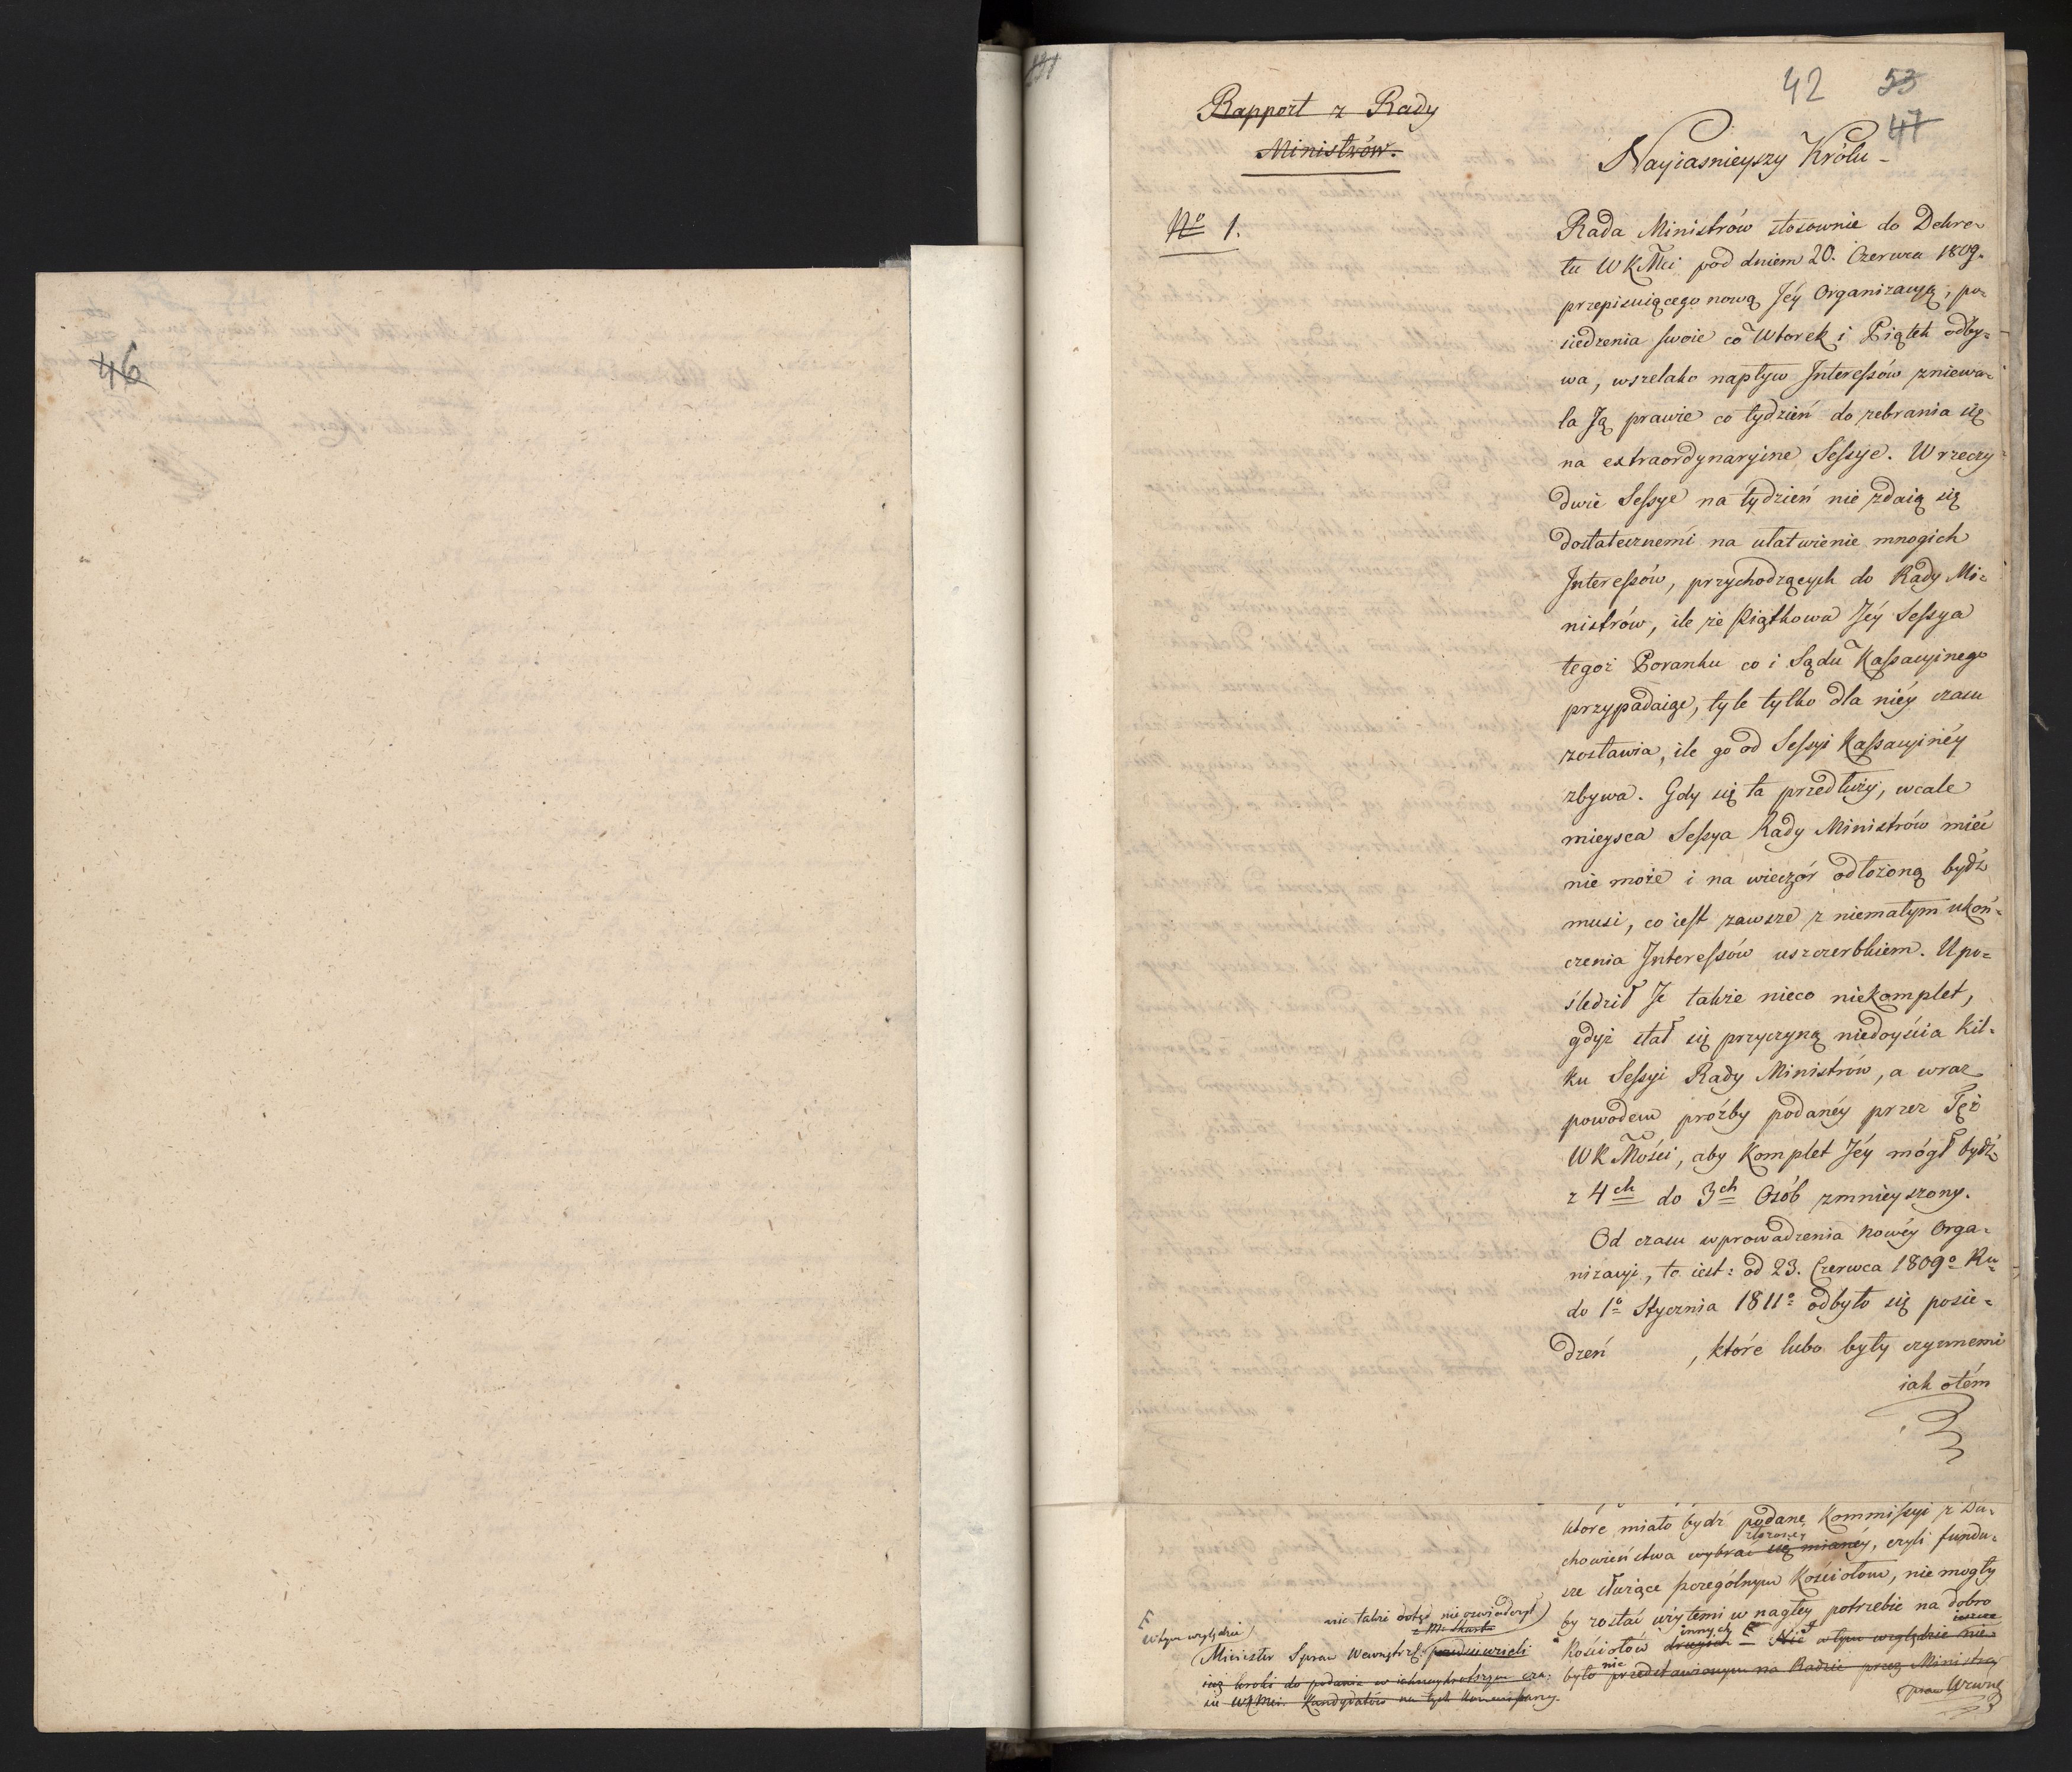 46
42 53
47
Rapport z Rady
Ministrów.
No 1.
Nayiasnieyszy Królu
Rada Ministrów stosownie do Dekre-
tu WKMci pod dniem 20. Czerwca 1809.
przepisuiącego nową Jéy Organizacyą, po-
siedzenia swoie co Wtorek i Piątek odby-
wa, wszelako napływ Interessów zniewa-
la Ją prawie co tydzień do zebrania się
na extraordynaryine Sessye. W rzeczy
dwie Sessye na tydzień nie zdaią się
dostatecznemi na ułatwienie mnogich
Interessów, przychodzących do Rady Mi-
nistrów, ile że Piątkowa Jéy Sessya
tegoż Poranku co i Sądu Kassacyinego
przypadaiąc, tyle tylko dla niéy czasu
zostawia, ile go od Sessyi Kassacyinéy
zbywa. Gdy się ta przedłuży, wcale
mieysca Sessya Rady Ministrów mieć
nie może i na wieczór odłożoną bydź
musi, co iest zawsze z niemałym ukoń-
czenia Interessów uszczerbkiem. Upo-
śledził Je także nieco niekomplet,
gdyż stał się przyczyną niedoyścia kil-
ku Sessyi Rady Ministrów, a wraz
powodem proźby podanéy przez Tęż
WKMości, aby Komplet Jéy mógł bydź
z 4ch do 3ch Osób zmnieyszony.
Od czasu wprowadzenia nowéy Orga-
nizacyi, to iest: od 23. Czerwca 1809o Ru
do 1o Stycznia 1811o odbyło się posie-
dzeń , które lubo były czynnemi
iak o tém
które miało bydź podane Kommissyi z Du-
złożoney
chowieństwa wybrać się mianéy, czyli fundu-
sze służące szczególnym Kościołom, nie mogły
by zostać użytemi w nagłéy potrzebie na dobro
innych ieszcze
Kościołów drugich Nic w tym względzie nie
było nic przedstawionym na Radzie przez Ministra
spraw Wewnę
w tym względzie nic także dotąd nie oświadczył
z M. Skarb
Minister Spraw Wewnętrz: przedsiewzieli
iuż kroki do podania w iaknaykrotszym cza-
sie WKMci. Kandydatów na tych Kommissarzy